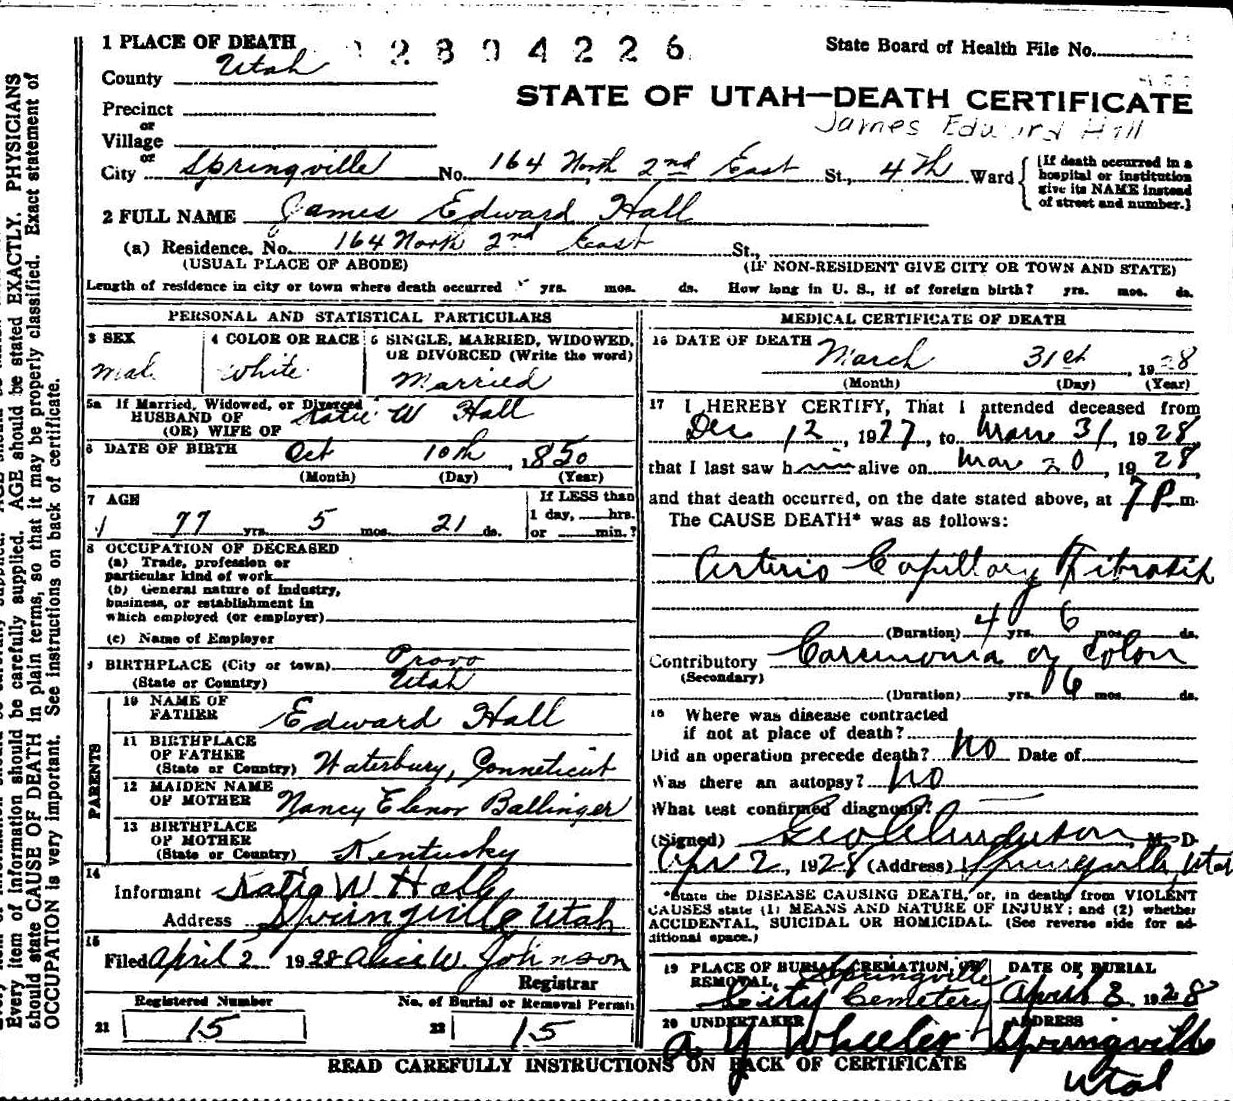 1 PLACE OF DEATH 2804226 State Board of Health File No.
County Utah
STATE OF UTAH—DEATH CERTIFICATE
Precinct
James Edward Hall
or
Village
or
City Springville No. 164 North 2nd East St., 4th Ward {If death occurred in a hospital or institution give its NAME instead of street and number.}
2 FULL NAME James Edward Hall
(a) Residence. No. 164 North 2nd East St.,
(USUAL PLACE OF ABODE) (IF NON-RESIDENT GIVE CITY OR TOWN AND STATE)
Length of residence in city or town where death occurred yrs. mos. ds. How long in U. S., if of foreign birth? yrs. mos. ds.
PERSONAL AND STATISTICAL PARTICULARS
3 SEX 4 COLOR OR RACE 5 SINGLE, MARRIED, WIDOWED,
OR DIVORCED (Write the word)
Male White Married
5a If Married, Widowed, or Divorced
HUSBAND OF Katie W Hall
(OR) WIFE OF
6 DATE OF BIRTH Oct 10th, 1850
(Month) (Day) (Year)
7 AGE If LESS than
77 yrs. 5 mos. 21 ds. 1 day, hrs.
or min.?
8 OCCUPATION OF DECEASED
(a) Trade, profession or
particular kind of work
(b) General nature of industry,
business, or establishment in
which employed (or employer)
(c) Name of Employer
9 BIRTHPLACE (City or town) Provo
(State or Country) Utah
PARENTS
10 NAME OF
FATHER Edward Hall
11 BIRTHPLACE
OF FATHER
(State or Country) Waterbury, Conneticut
12 MAIDEN NAME
OF MOTHER Nancy Elenor Ballinger
13 BIRTHPLACE
OF MOTHER
(State or Country) Kentusky
14
Informant Katie W Hall
Address Springville, Utah
15
Filed April 2 1928 Alice W. Johnson
Registrar
Registered Number No. of Burial or Removal Permit
21 15 22 15
MEDICAL CERTIFICATE OF DEATH
16 DATE OF DEATH March 31st, 1928
(Month) (Day) (Year)
17 I HEREBY CERTIFY, That I attended deceased from
Dec 12, 1927, to Mar 31, 1928,
that I last saw him alive on Mar 20, 1928
and that death occurred, on the date stated above, at 7 P m.
The CAUSE DEATH* was as follows:
Arterio Capillary Fibrosis
(Duration) 4 yrs. 6 mos. ds.
Contributory Carcinonia of Colon
(Secondary)
(Duration) yrs. 6 mos. ds.
18 Where was disease contracted
if not at place of death?
Did an operation precede death? No Date of
Was there an autopsy? No
What test confirmed diagnosis?
(Signed) M. D.
Apr 2, 1928 (Address) Springville, Utah
*State the DISEASE CAUSING DEATH, or, in deaths from VIOLENT
CAUSES state (1) MEANS AND NATURE OF INJURY; and (2) whether
ACCIDENTAL, SUICIDAL OR HOMICIDAL. (See reverse side for ad-
ditional space.)
19 PLACE OF BURIAL, CREMATION, OR DATE OF BURIAL
REMOVAL, Springville
City Cemetery April 3 1928
20 UNDERTAKER ADDRESS
A Y Wheeler Springville
Utah
READ CAREFULLY INSTRUCTIONS ON BACK OF CERTIFICATE
Every item of information should be carefully supplied. AGE should be stated EXACTLY. PHYSICIANS
should state CAUSE OF DEATH in plain terms, so that it may be properly classified. Exact statement of
OCCUPATION is very important. See instructions on back of certificate.